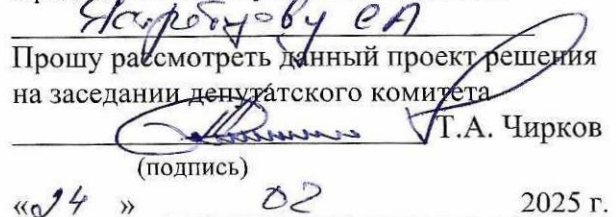 Ястребцову СА
Прошу рассмотреть данный проект решения
на заседании депутатского комитета
Т.А. Чирков
(подпись)
«24 » 02 2025 г.